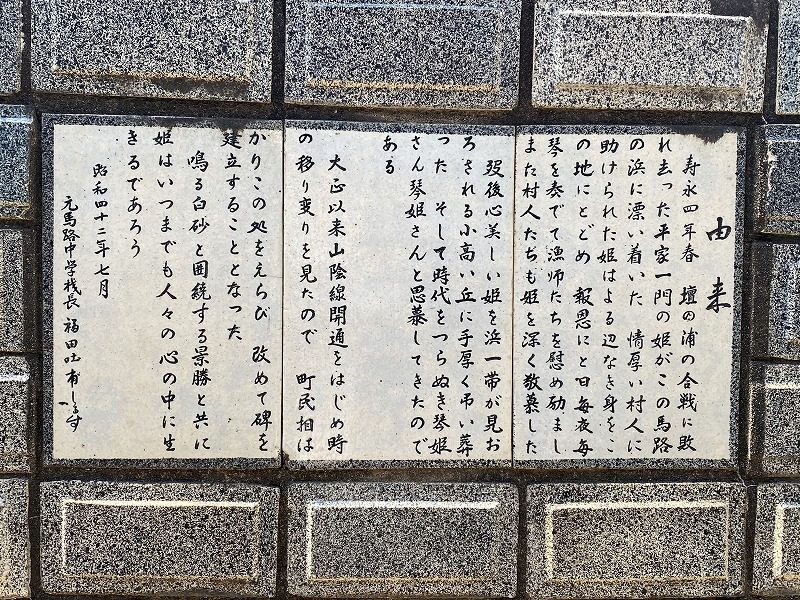 由来
寿永四年春 壇の浦の合戦に敗
れ去った平家一門の姫がこの馬路
の浜に漂い着いた 情厚い村人に
助けられた姫はよる辺なき身をこ
の地にとどめ 報恩にと日毎夜毎
琴を奏でて漁師たちを慰め励まし
また村人たちも姫を深く敬慕した
歿後心美しい姫を浜一帯が見お
ろされる小高い丘に手厚く弔い葬
った そして時代をつらぬき琴姫
さん琴姫さんと思慕してきたので
ある
大正以来山陰線開通をはじめ時
の移り変りを見たので 町民相は
かりこの処をえらび 改めて碑を
建立することとなった
鳴る白砂と囲繞する景勝と共に
姫はいつまでも人々の心の中に生
きるであろう
昭和四十二年七月
元馬路中学校長 福田
しるす